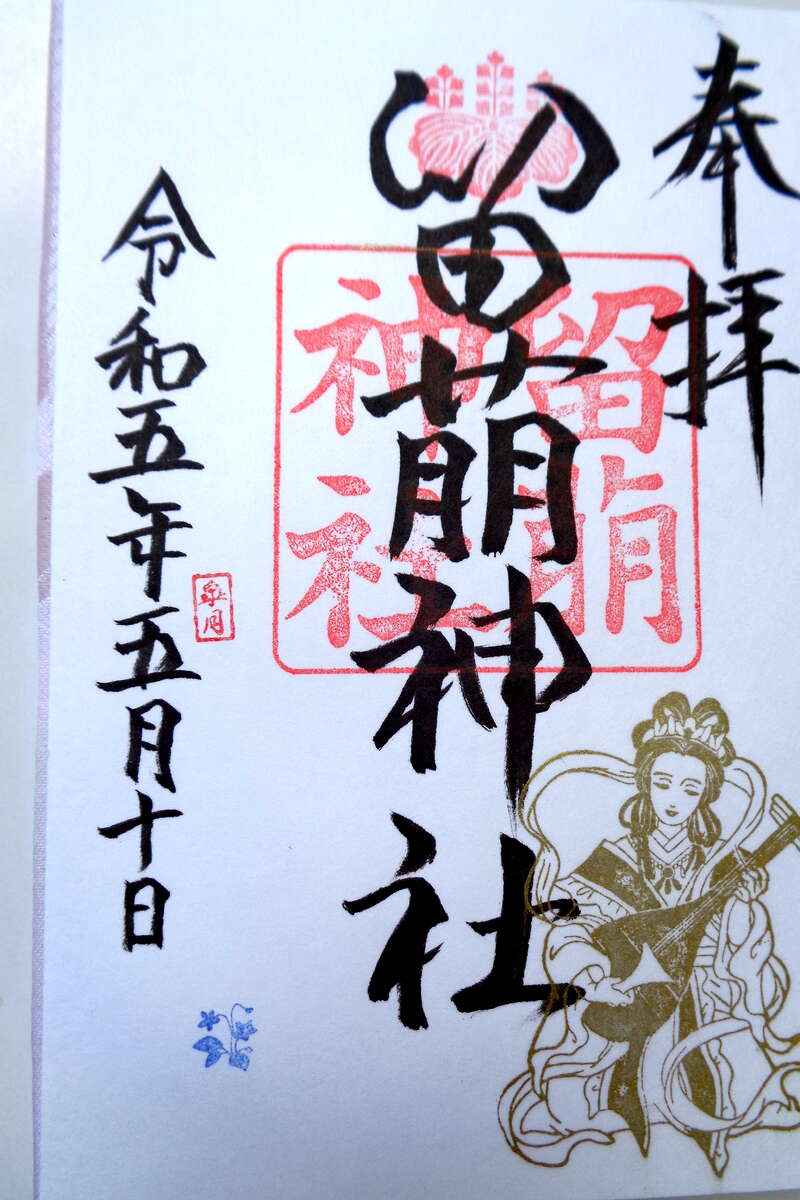 奉拝
留萌神社
留萌神社
令和五年五月十日
皐月